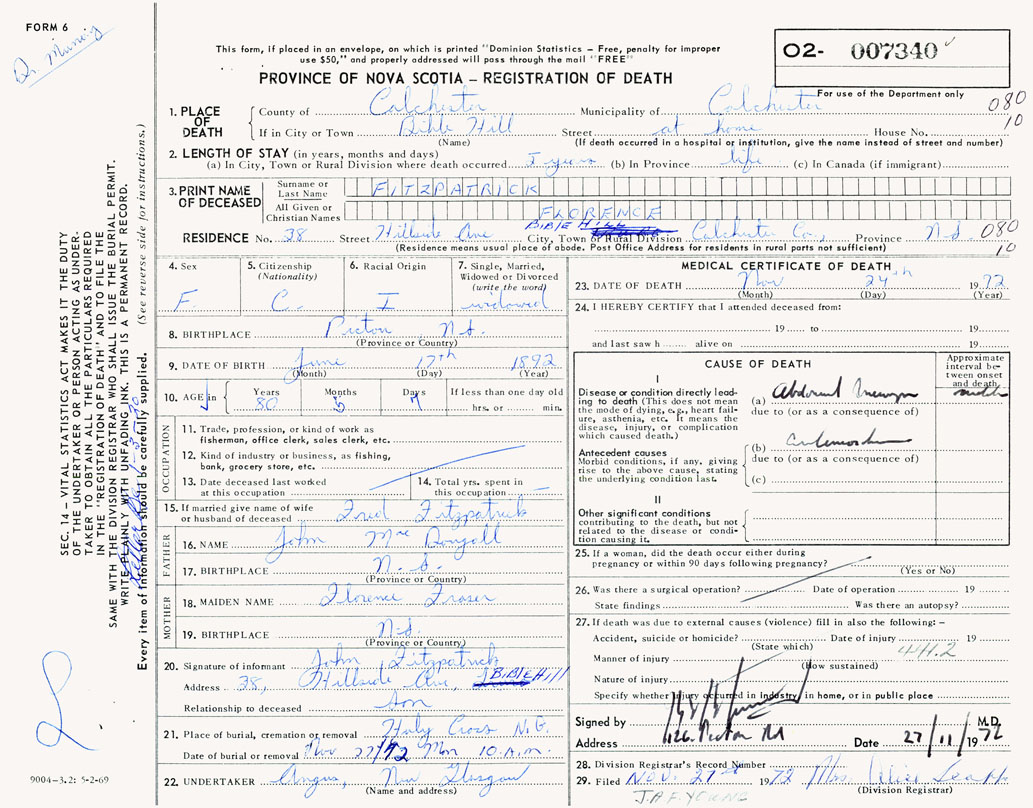 FORM 6
This form, if placed in an envelope, on which is printed "Dominion Statistics - Free, penalty for improper
use $50," and properly addressed will pass through the mail "FREE"
PROVINCE OF NOVA SCOTIA – REGISTRATION OF DEATH
02- 007340
For use of the Department only
080
10
1. PLACE OF DEATH
County of Colchester Municipality of Colchester
If in City or Town Bible Hill Street at home House No.
(Name) (If death occurred in a hospital or institution, give the name instead of street and number)
2. LENGTH OF STAY (in years, months and days)
(a) In City, Town or Rural Division where death occurred 5 years (b) In Province life (c) In Canada (if immigrant)
3. PRINT NAME OF DECEASED
Surname or Last Name FITZPATRICK
All Given or Christian Names FLORENCE
BIBLE HILL
RESIDENCE No. 38 Street Hillside Ave City, Town or Rural Division Colchester Co., Province N.S 080
(Residence means usual place of abode. Post Office Address for residents in rural parts not sufficient) 10
4. Sex F
5. Citizenship (Nationality) C.
6. Racial Origin I
7. Single, Married, Widowed or Divorced (write the word) widowed
8. BIRTHPLACE Pictou, N.S.
(Province or Country)
9. DATE OF BIRTH June 17th 1892
(Month) (Day) (Year)
10. AGE in Years 80 Months 5 Days 7 If less than one day old hrs. or min.
OCCUPATION
11. Trade, profession, or kind of work as
fisherman, office clerk, sales clerk, etc.
12. Kind of industry or business, as fishing,
bank, grocery store, etc.
13. Date deceased last worked
at this occupation
14. Total yrs. spent in
this occupation
15. If married give name of wife
or husband of deceased Fred Fitzpatrick
FATHER
16. NAME John Mac Dougall
17. BIRTHPLACE N.S.
(Province or Country)
MOTHER
18. MAIDEN NAME Florence Fraser
19. BIRTHPLACE N.S.
(Province or Country)
20. Signature of informant John Fitzpatrick
Address 38, Hillside Ave, BIBLE Hill
Relationship to deceased Son
21. Place of burial, cremation or removal Holy Cross N.G.
Date of burial or removal Nov 27/72 Mon 10. A.m.
22. UNDERTAKER Angus, New Glasgow
(Name and address)
MEDICAL CERTIFICATE OF DEATH
23. DATE OF DEATH Nov 24th 1972
(Month) (Day) (Year)
24. I HEREBY CERTIFY that I attended deceased from:
19 to 19
and last saw h alive on 19
CAUSE OF DEATH
Approximate interval between onset and death
I
Disease or condition directly leading to death (This does not mean
the mode of dying, e.g., heart failure, asthenia, etc. It means the
disease, injury, or complication
which caused death.)
(a)
due to (or as a consequence of)
Antecedent causes
Morbid conditions, if any, giving
rise to the above cause, stating
the underlying condition last.
(b)
due to (or as a consequence of)
(c)
II
Other significant conditions
contributing to the death, but not
related to the disease or condition causing it.
25. If a woman, did the death occur either during
pregnancy or within 90 days following pregnancy?
(Yes or No)
26. Was there a surgical operation? Date of operation 19
State findings Was there an autopsy?
27. If death was due to external causes (violence) fill in also the following: –
Accident, suicide or homicide? Date of injury 19
(State which) 441.2
Manner of injury
(How sustained)
Nature of injury
Specify whether injury occurred in industry, in home, or in public place
Signed by M.D.
Address 126. Pictou Rd Date 27/11/1972
28. Division Registrar's Record Number
29. Filed NOV. 27th 1972 Mrs.
(Division Registrar)
J.A.F. YOUNG
SEC. 14 – VITAL STATISTICS ACT MAKES IT THE DUTY
OF THE UNDERTAKER OR PERSON ACTING AS UNDER-
TAKER TO OBTAIN ALL THE PARTICULARS REQUIRED
IN THE "REGISTRATION OF DEATH" AND TO FILE THE
SAME WITH THE DIVISION REGISTRAR WHO SHALL ISSUE THE BURIAL PERMIT.
WRITE PLAINLY WITH UNFADING INK. THIS IS A PERMANENT RECORD.
Every item of information should be carefully supplied. (See reverse side for instructions.)
9004-3.2: 5-2-69